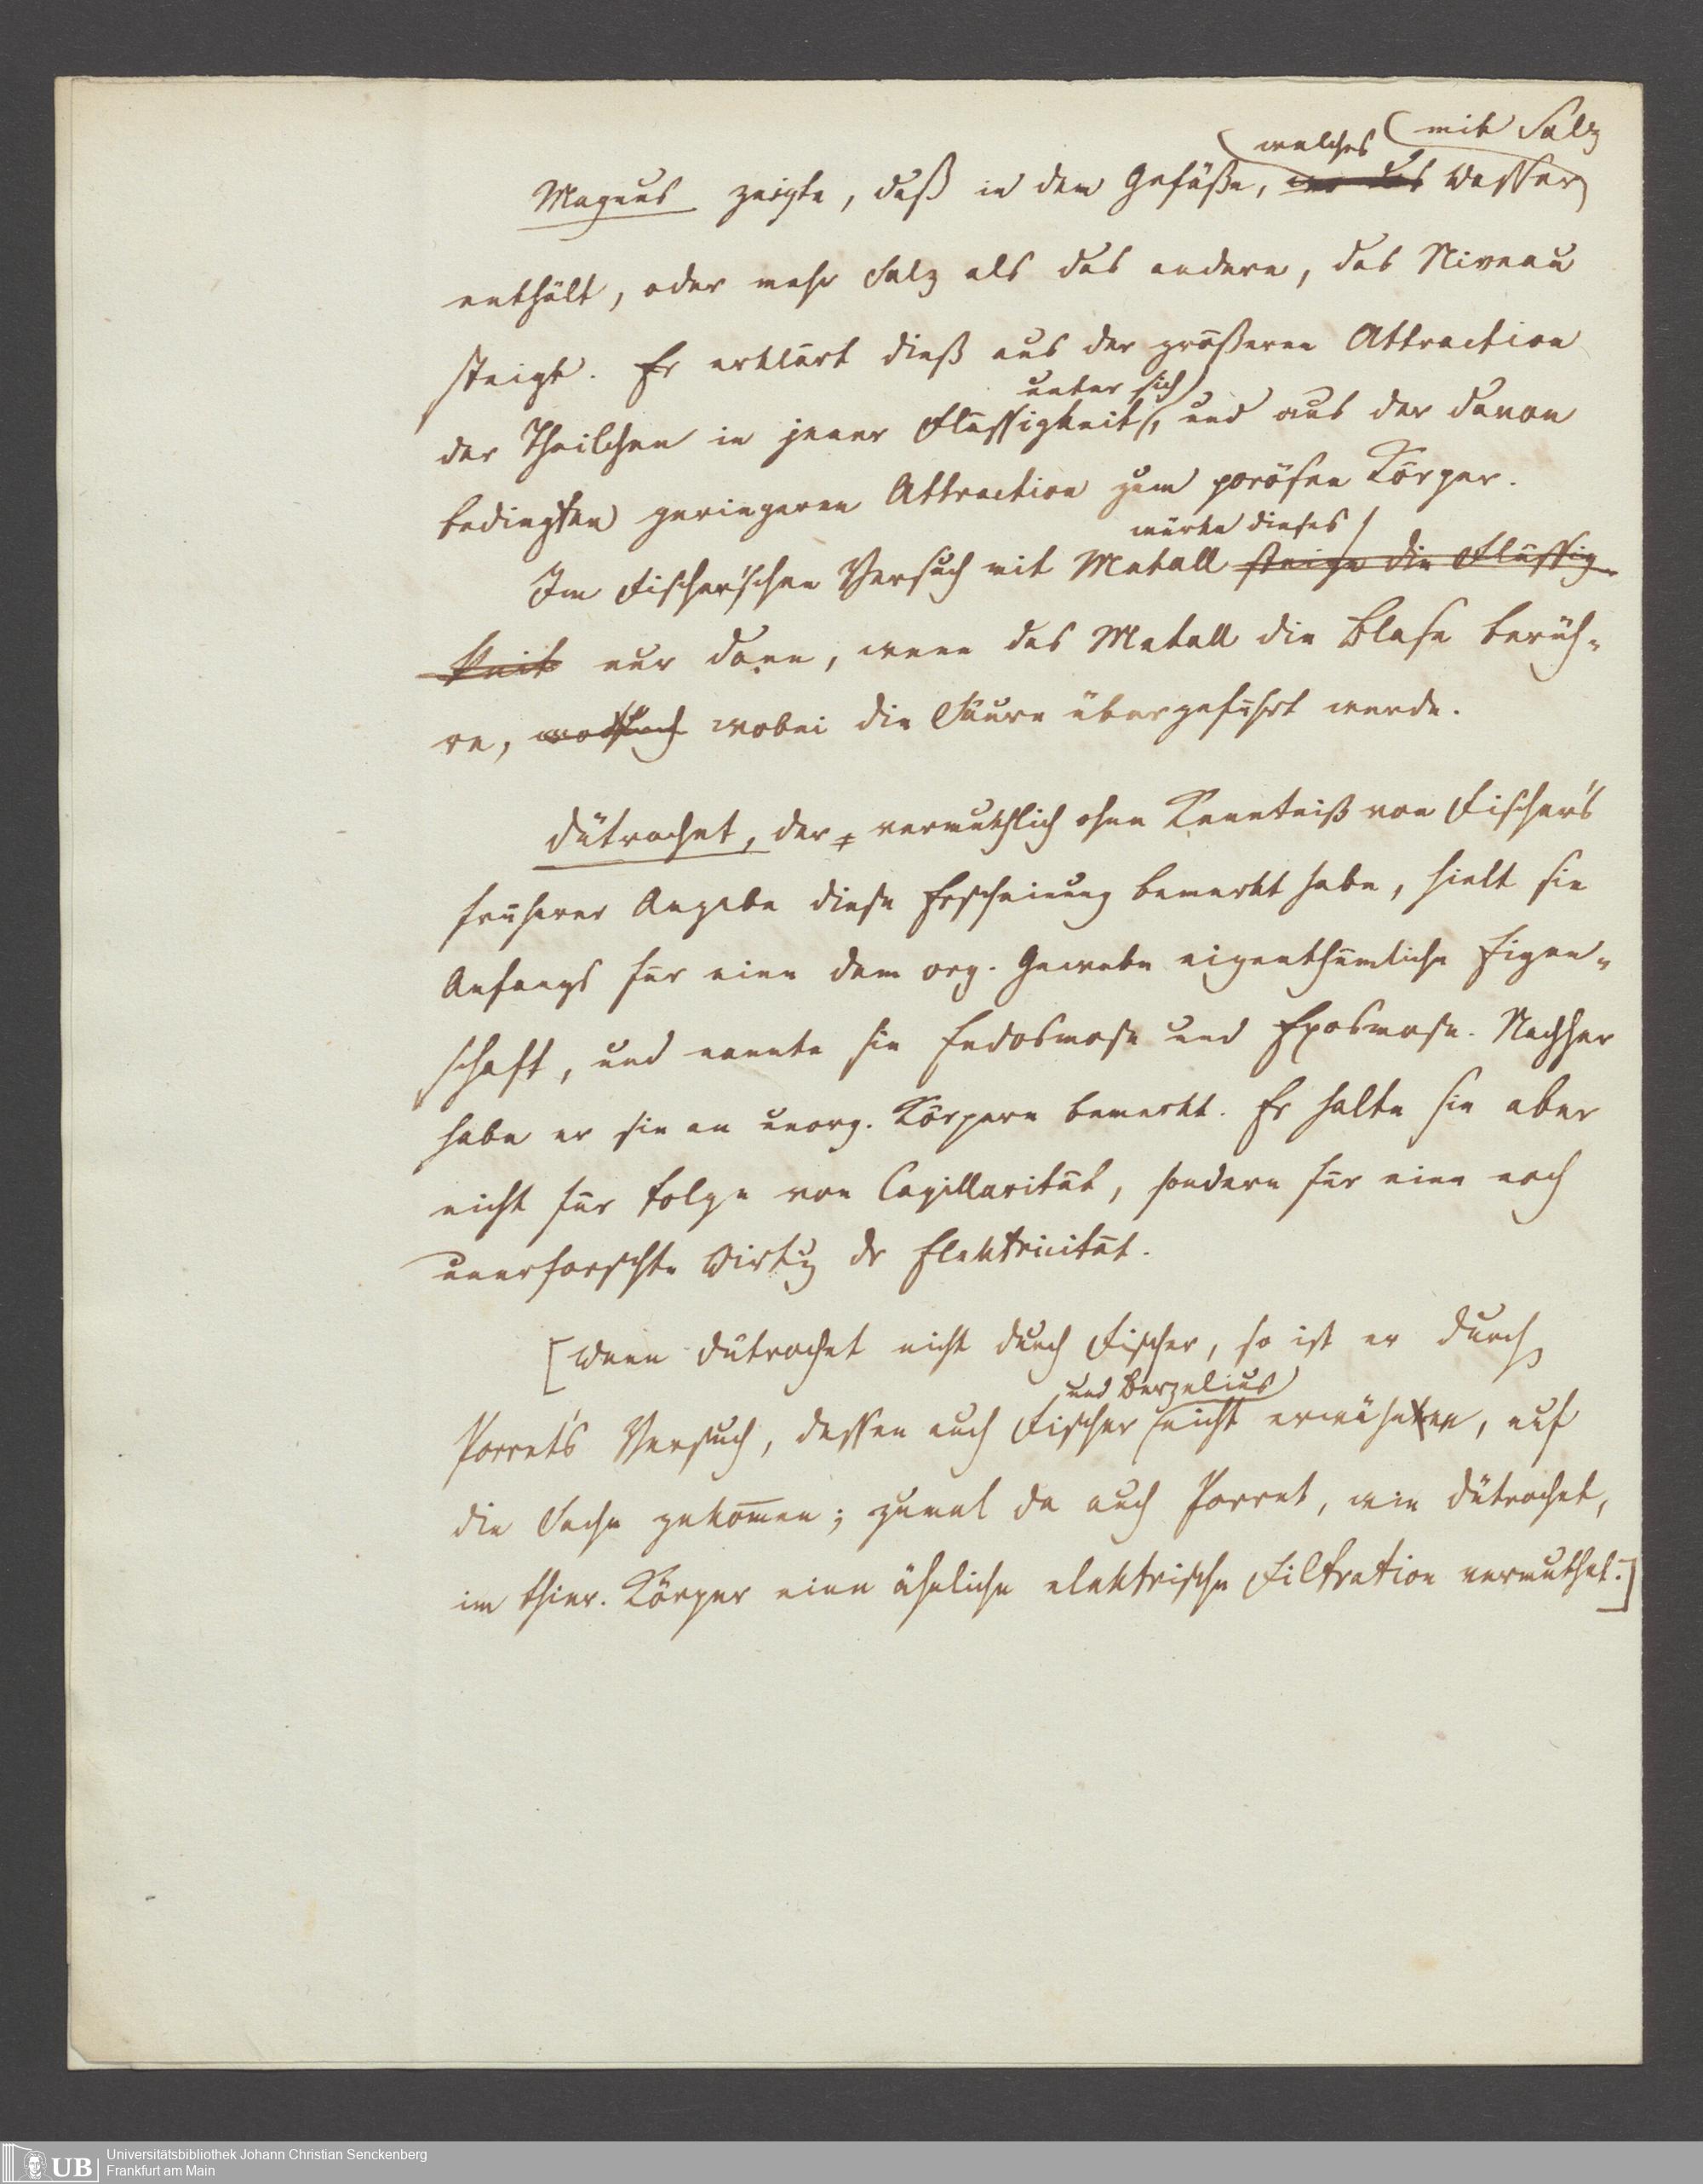 Magnus zeigte, daß in dem Gefäße, welches Wasser mit Salz
enthält, oder mehr Salz als das andere, das Niveau
steigt. Er erklärt dieß aus der größeren Attraction
der Theilchen in jener Flüssigkeit unter sich, und aus der davon
bedingten geringeren Attraction zum porösen Körper.
Im Fischer'schen Versuch mit Metall würke dieses steige die Flüssig-
keit nur dann, wenn das Metall die Blase berüh-
re, wobei die Säure übergeführt werde.
Dütrochet, der vermuthlich ohne Kenntniß von Fischer's
früherer Angabe diese Erscheinung bemerkt habe, hielt sie
Anfangs für eine dem org. Gewebe eigenthümliche Eigen-
schaft, und nannte sie Endosmose und Exosmose. Nachher
habe er sie an unorg. Körpern bemerkt. Er halte sie aber
nicht für Folge von Capillarität, sondern für eine noch
unerforschte Wirkg dr Elektricität.
[Wenn Dütrochet nicht durch Fischer, so ist er durch
Porret's Versuch, dessen auch Fischer und Berzelius nicht erwähnen, auf
die Sache gekommen; zumal da auch Porret, wie Dütrochet,
im thier. Körper eine ähnliche elektrische Filtration vermuthet.]
UB Universitätsbibliothek Johann Christian Senckenberg
Frankfurt am Main